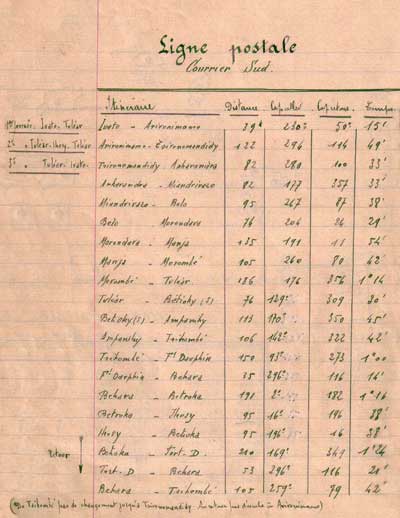 Ligne postale
Courrier Sud.
Itinéraire Distance Cap aller Cap retour Temps
1er Courrier: Ivato. Tuléar Ivato - Arivonimamo 29k 230° 50° 15'
2e " Tuléar. Ihosy. Tuléar Arivonimamo - Tsiroanomandidy 122 294 114 49'
3e " Tuléar. Ivato. Tsiroanomandidy - Ankavandra 82 280 100 33'
Ankavandra - Miandrivazo 82 177 357 33'
Miandrivazo - Belo 95 267 87 38'
Belo - Morondava 74 206 26 29'
Morondava - Manja 135 191 11 54'
Manja - Morombé 105 260 80 42'
Morombé - Tuléar 186 176 356 1h14
Tuléar - Betioky (S) 76 129° 309 30'
Betioky (S) - Ampanihy 113 170° 350 45'
Ampanihy - Tsihombé 106 142° 322 42'
Tsihombé - Ft Dauphin 150 93° 273 1h00
Ft Dauphin - Behara 35 296° 116 14'
Behara - Betroka 191 2° 182 1h16
Betroka - Ihosy 95 16° 196 38'
Ihosy - Betroka 95 196° 16 38'
Retour Betroka - Fort. D. 210 169° 349 1h24
Fort. D - Behara 53 296° 116 21'
Behara - Tsihombé 105 259° 79 42'
Tsihombé pas de changement jusqu'à Tsiroanomandidy